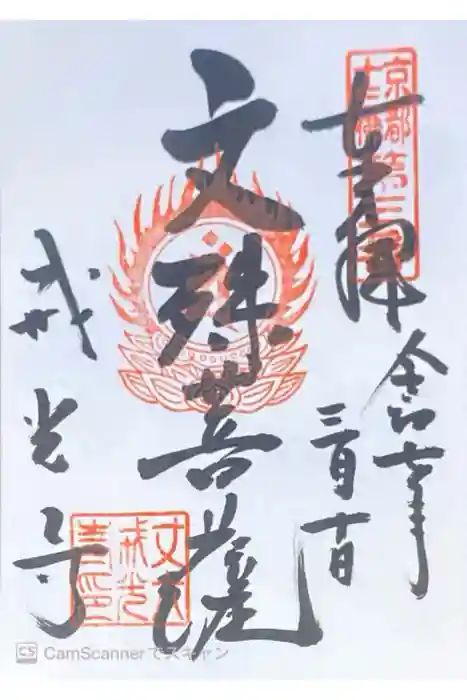 京都第三番
十三佛
奉拝
令和七年
三月十日
文殊菩薩
戒光寺
丈六
戒光
寺印
CS CamScannerでスキャン